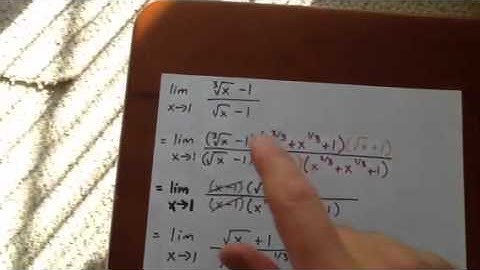 lim x→1 (∛x - 1)/(√x - 1)
= lim x→1 (∛x - 1)(x^2/3 + x^1/3 + 1)(√x + 1)/(√x - 1)(x^2/3 + x^1/3 + 1)
= lim x→1 (x-1)(√/(x-1)(x 1)
= lim x→1 √x + 1/1/3